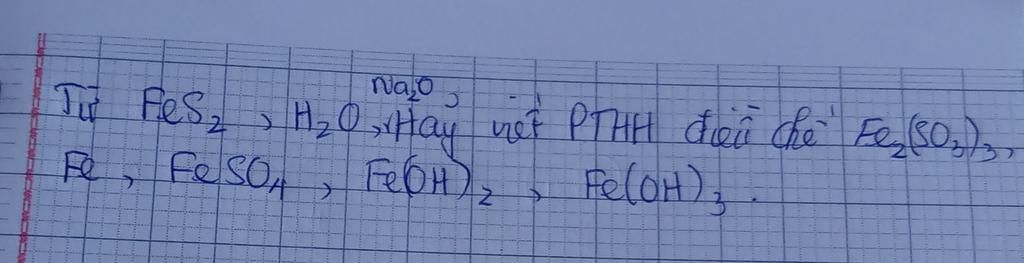 Từ FeS₂, H₂O, Na₂O, Hãy viết PTHH điều chế Fe₂(SO₃)₃,
Fe, FeSO₄, Fe(OH)₂, Fe(OH)₃.